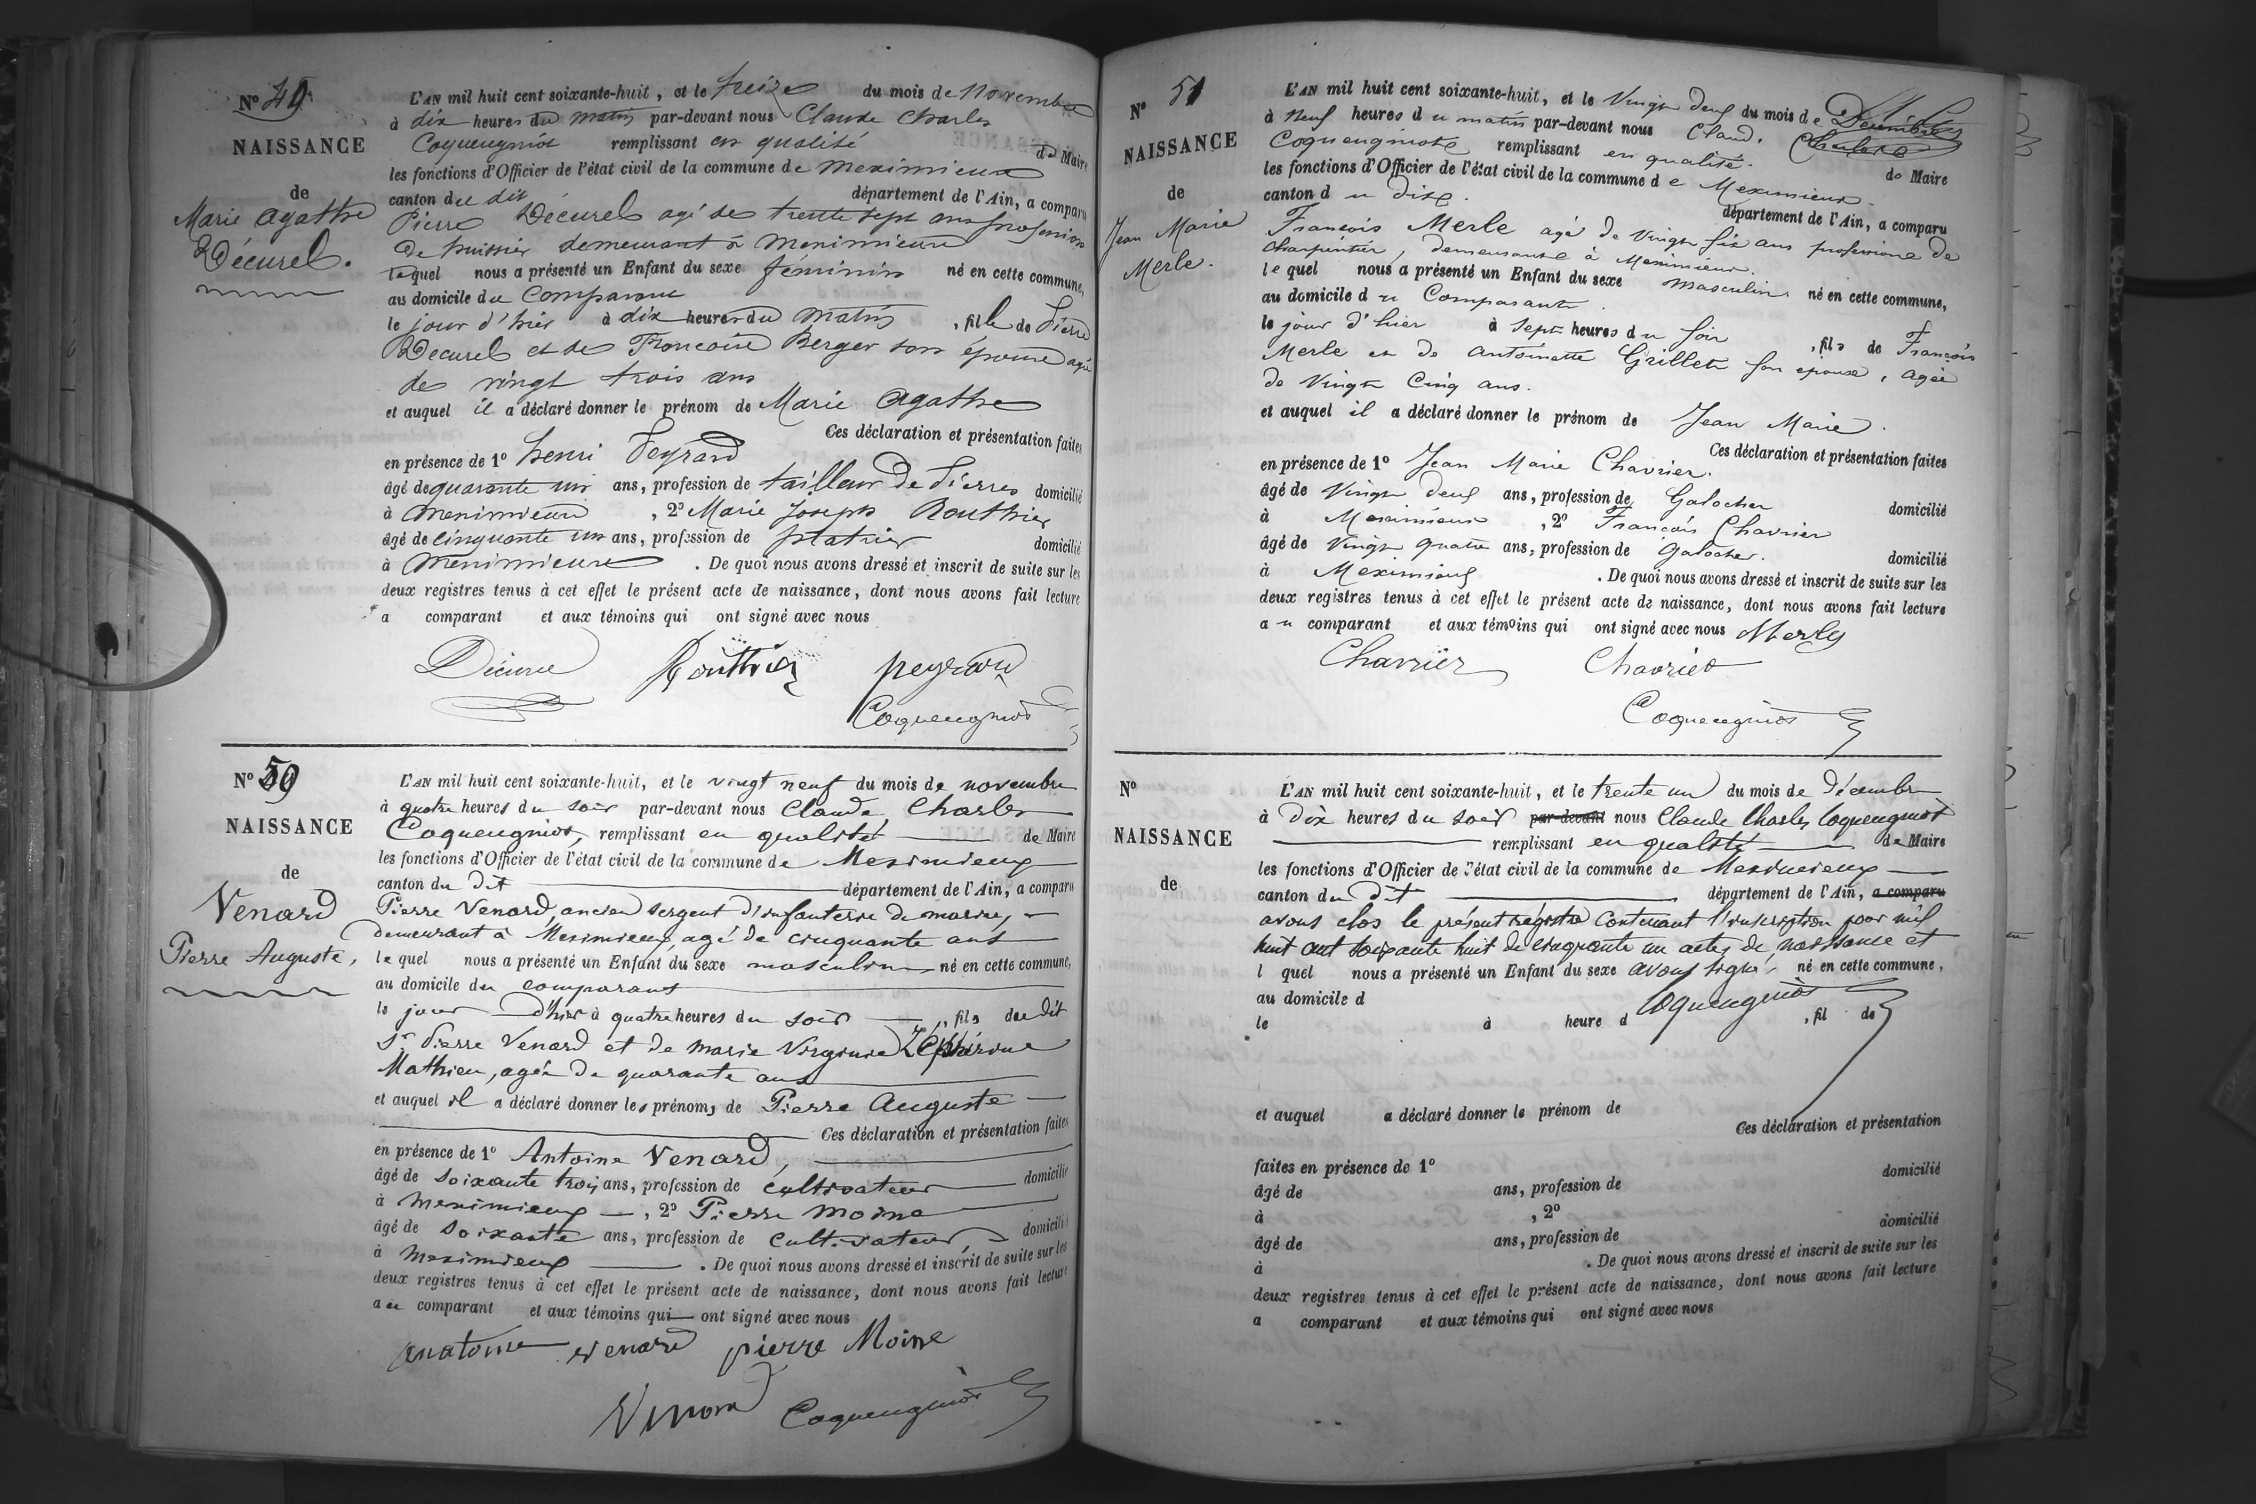 N° 49
NAISSANCE
de
Marie Agathe
Décurel.
L'AN mil huit cent soixante-huit, et le treize du mois de novembre
à dix heures du matin par-devant nous Claude Charles
Coquengniot remplissant en qualité de Maire
les fonctions d'Officier de l'état civil de la commune de Meximieux
canton du dit département de l'Ain, a comparu
Pierre Décurel agé de trente sept ans profession
de huissier demeurant à Meximieux
lequel nous a présenté un Enfant du sexe féminin né en cette commune,
au domicile du Comparant
le jour d'hier à dix heures du matin, fille de Pierre
Décurel et de Francoise Berger son épouse agée
de vingt trois ans
et auquel il a déclaré donner le prénom de Marie Agathe
Ces déclaration et présentation faites
en présence de 1° henri Peyrard
âgé de quarante un ans, profession de tailleur de Pierres domicilié
à Meximieux, 2° Marie Joseph Routhier
âgé de cinquante un ans, profession de platrier domicilié
à Meximieux. De quoi nous avons dressé et inscrit de suite sur les
deux registres tenus à cet effet le présent acte de naissance, dont nous avons fait lecture
a comparant et aux témoins qui ont signé avec nous
Décurel Routhier peyrard
Coquengniot
N° 50
NAISSANCE
de
Venard
Pierre Auguste,
L'AN mil huit cent soixante-huit, et le vingt neuf du mois de novembre
à quatre heures du soir par-devant nous Claude Charles
Coquengniot, remplissant en qualité de Maire
les fonctions d'Officier de l'état civil de la commune de Meximieux
canton du dit département de l'Ain, a comparu
Pierre Venard, ancien sergent d'infanterie de marine,
demeurant à Meximieux, agé de cinquante ans
lequel nous a présenté un Enfant du sexe masculin né en cette commune,
au domicile du comparant
le jour d'hier à quatre heures du soir, fils du dit
Sr Pierre Venard et de marie Virginie Zéphirine
Mathieu, agée de quarante ans
et auquel il a déclaré donner les prénoms de Pierre Auguste
Ces déclaration et présentation faites
en présence de 1° Antoine Venard,
âgé de soixante trois ans, profession de cultivateur domicilié
à Meximieux, 2° Pierre Moine
âgé de soixante ans, profession de cultivateur, domicilié
à Meximieux. De quoi nous avons dressé et inscrit de suite sur les
deux registres tenus à cet effet le présent acte de naissance, dont nous avons fait lecture
au comparant et aux témoins qui ont signé avec nous
venard pierre Moine
Venard Coquengniot
N° 51
NAISSANCE
de
Jean Marie
Merle.
L'AN mil huit cent soixante-huit, et le Vingt deux du mois de Décembre
à Neuf heures du matin par-devant nous Claude Charles
Coquengniot remplissant en qualité. de Maire
les fonctions d'Officier de l'état civil de la commune de Meximieux
canton du dit. département de l'Ain, a comparu
François Merle agé de Vingt six ans professione de
charpentier, demeurant à Meximieux.
lequel nous a présenté un Enfant du sexe masculin né en cette commune,
au domicile du Comparant.
le jour d'hier à Sept heures du soir, fils de François
Merle et de Antoinette Grillet son epouse, agée
de Vingt Cinq ans.
et auquel il a déclaré donner le prénom de Jean Marie.
Ces déclaration et présentation faites
en présence de 1° Jean Marie Chavrier.
âgé de Vingt deux ans, profession de Galocher domicilié
à Meximieux, 2° François Chavrier
âgé de Vingt quatre ans, profession de Galocher. domicilié
à Meximieux. De quoi nous avons dressé et inscrit de suite sur les
deux registres tenus à cet effet le présent acte de naissance, dont nous avons fait lecture
au comparant et aux témoins qui ont signé avec nous Merle
Chavrier Chavrier
Coquengniot
N°
NAISSANCE
de
L'AN mil huit cent soixante-huit, et le trente un du mois de décembre
à dix heures du soir par-devant nous Claude Charles Coquengniot
remplissant en qualité de Maire
les fonctions d'Officier de l'état civil de la commune de Meximieux
canton du dit département de l'Ain, a comparu
avons clos le présent registre contenant l'inscription pour mil
huit cent soixante huit de cinquante un actes de naissance et
l quel nous a présenté un Enfant du sexe avons signé, né en cette commune,
au domicile d Coquengniot
le à heure d, fil de
et auquel a déclaré donner le prénom de
Ces déclaration et présentation
faites en présence de 1°
âgé de ans, profession de domicilié
à, 2°
âgé de ans, profession de domicilié
à. De quoi nous avons dressé et inscrit de suite sur les
deux registres tenus à cet effet le présent acte de naissance, dont nous avons fait lecture
a comparant et aux témoins qui ont signé avec nous